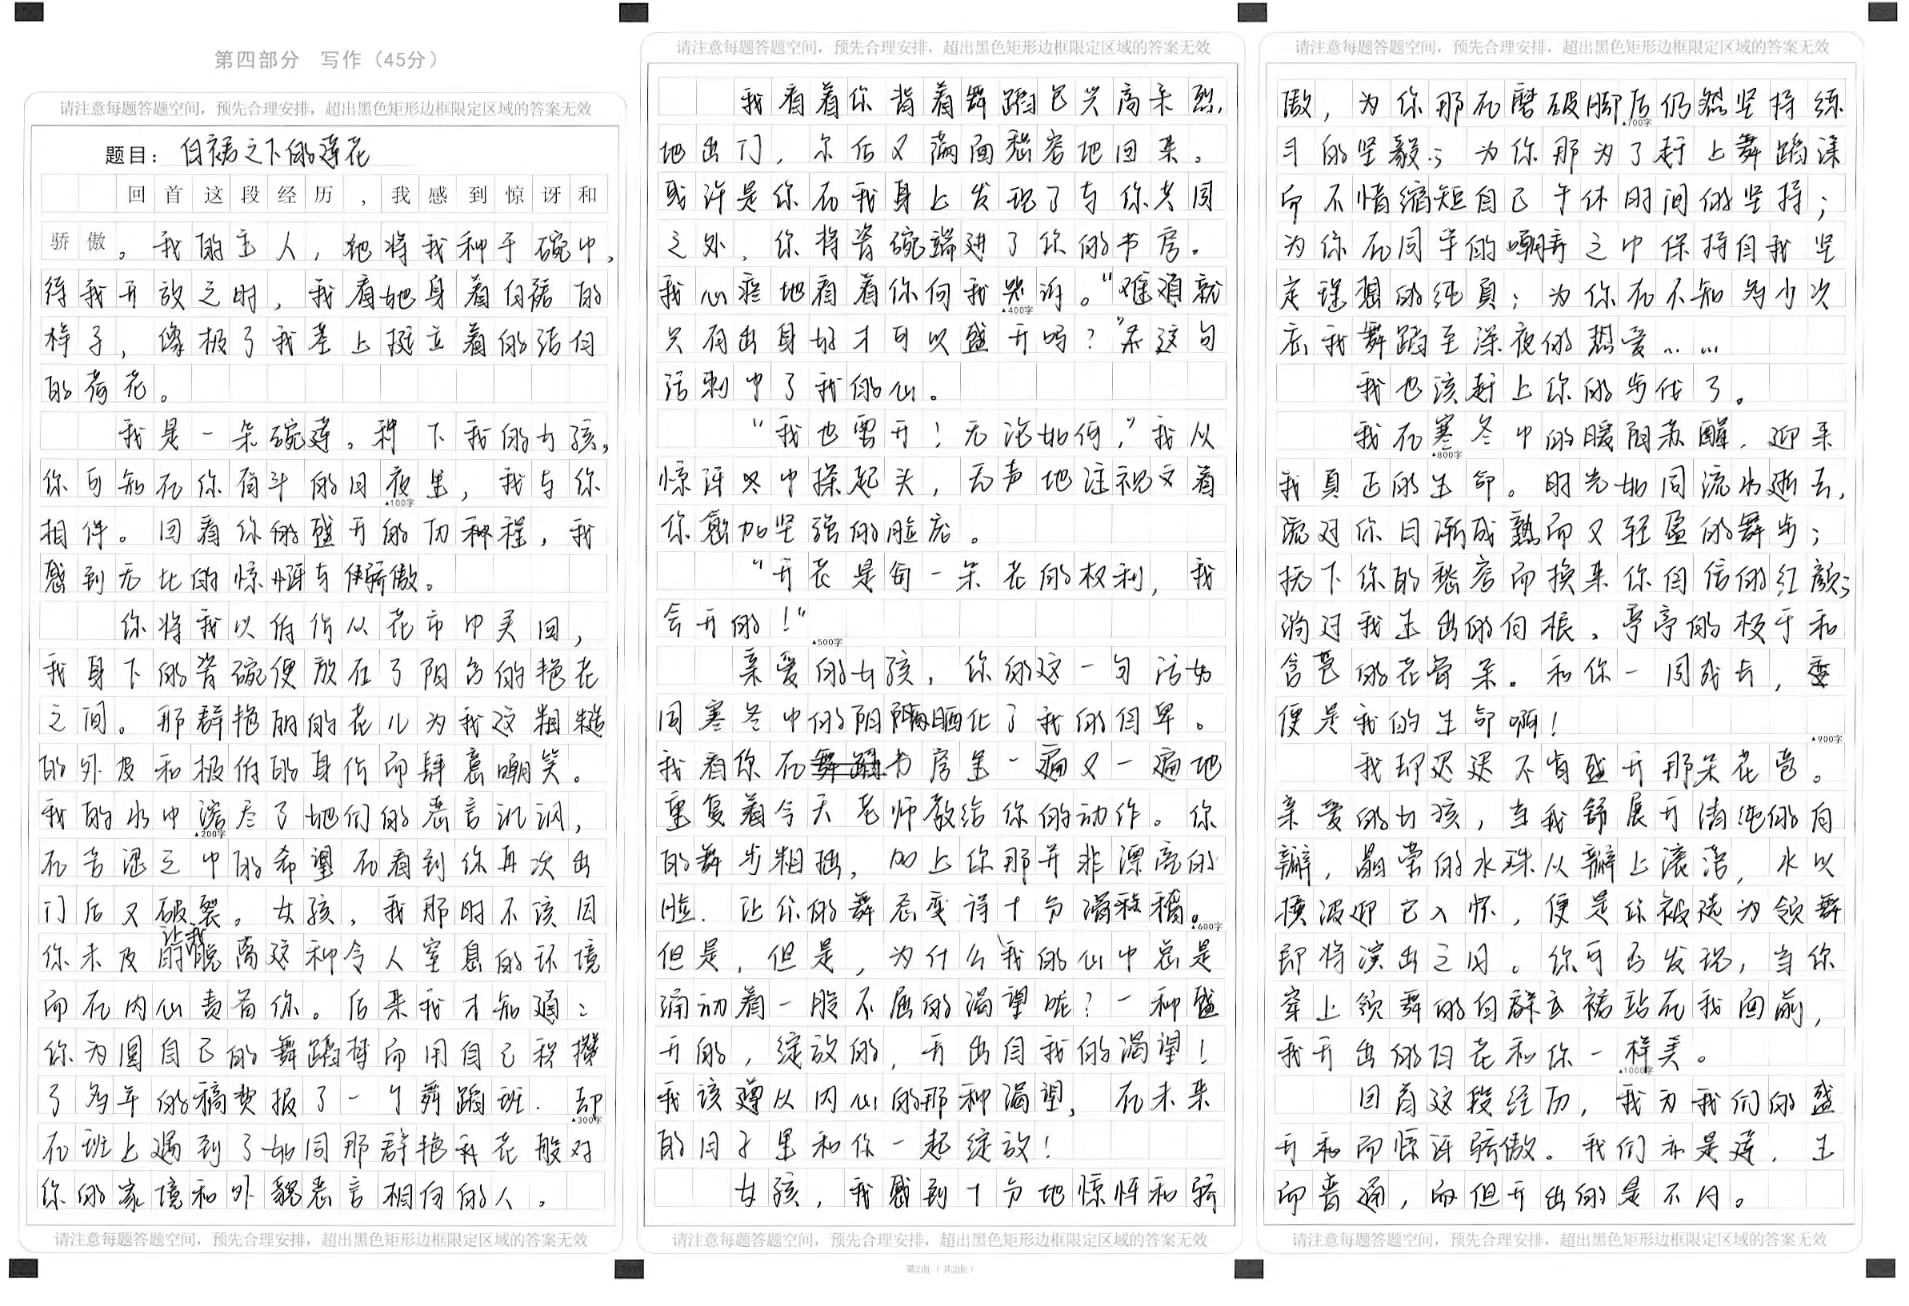 第四部分 写作（45分）
请注意每题答题空间，预先合理安排，超出黑色矩形边框限定区域的答案无效
题目：白裙之下的莲花
回首这段经历，我感到惊讶和
骄傲。我的主人，她将我种于碗中，
待我开放之时，我看她身着白裙的
样子，像极了我茎上挺立着的洁白
的荷花。
我是一朵碗莲。种下我的女孩，
你可知在你奋斗的日夜里，我与你
相伴。回看你的盛开的历程，我
感到无比的惊讶与骄傲。
你将我以低价从花市中买回，
我身下的瓷碗便放在了阳台的艳花
之间。那群艳丽的花儿为我这粗糙
的外皮和极低的身价而肆意嘲笑。
我的水中溶尽了她们的恶言讥讽，
在苦涩之中的希望在看到你再次出
门后又破裂。女孩，我那时不该因
你未及时让我脱离这种令人窒息的环境
而在内心责备你。后来我才知道：
你为圆自己的舞蹈梦而用自己积攒
了多年的稿费报了一个舞蹈班，却
在班上遇到了如同那群艳花般对
你的家境和外貌恶言相向的人。
请注意每题答题空间，预先合理安排，超出黑色矩形边框限定区域的答案无效
请注意每题答题空间，预先合理安排，超出黑色矩形边框限定区域的答案无效
我看着你背着舞蹈包兴高采烈
地出门，尔后又满面愁容地回来。
或许是你在我身上发现了与你共同
之处，你将瓷碗端进了你的书房。
我心疼地看着你向我哭诉。“难道就
只有出身好才可以盛开吗？”这句
话刺中了我的心。
“我也要开！无论如何，”我从
惊讶之中探起头，无声地注视着
你愈加坚强的脸庞。
“开花是每一朵花的权利，我
会开的！”
亲爱的女孩，你的这一句话如
同寒冬中的阳光晒化了我的自卑。
我看你在书房里一遍又一遍地
重复着今天老师教给你的动作。你
的舞步粗拙，加上你那并非漂亮的
脸，让你的舞态变得十分滑稽。
但是，但是，为什么我的心中总是
涌动着一股不屈的渴望呢？一种盛
开的，绽放的，开出自我的渴望！
我该遵从内心的那种渴望，在未来
的日子里和你一起绽放！
女孩，我感到十分地惊讶和骄
请注意每题答题空间，预先合理安排，超出黑色矩形边框限定区域的答案无效
第2面（共2面）
请注意每题答题空间，预先合理安排，超出黑色矩形边框限定区域的答案无效
傲，为你那在磨破脚后仍然坚持练
习的坚毅；为你那为了赶上舞蹈课
而不惜缩短自己午休时间的坚持；
为你在同学的嘲弄之中保持自我坚
定理想的纯真；为你在不知多少次
在我舞蹈至深夜的热爱……
我也该赶上你的步伐了。
我在寒冬中的暖阳苏醒，迎来
我真正的生命。时光如同流水逝去，
流过你日渐成熟而又轻盈的舞步；
抚下你的愁容而换来你自信的红颜；
淌过我生出的白根，亭亭的枝干和
含苞的花骨朵。和你一同成长，
便是我的生命啊！
我却迟迟不肯盛开那朵花苞。
亲爱的女孩，当我舒展开清纯的白
瓣，晶莹的水珠从瓣上滚落，水以
横波迎它入怀，便是你被选为领舞
即将演出之日。你可否发现，当你
穿上领舞的白裙站在我面前，
我开出的白花和你一样美。
回首这段经历，我为我们的盛
开而惊讶骄傲。我们亦是莲，生
而普通，而但开出的是不凡。
请注意每题答题空间，预先合理安排，超出黑色矩形边框限定区域的答案无效